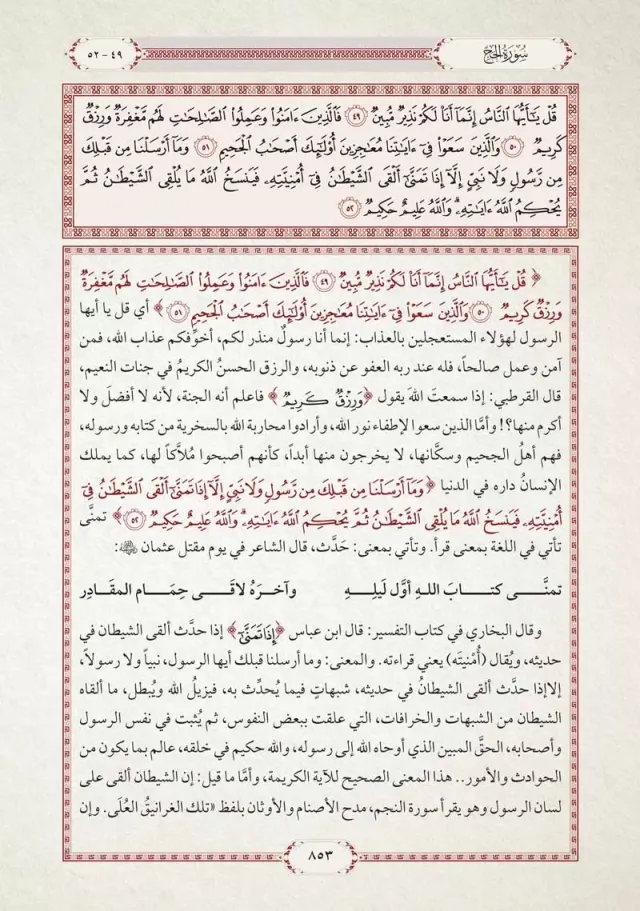 سُورَةُ الحَجّ
٤٩ - ٥٢
قُلْ يَٰٓأَيُّهَا ٱلنَّاسُ إِنَّمَآ أَنَا۠ لَكُمْ نَذِيرٌ مُّبِينٌ ٤٩ فَٱلَّذِينَ ءَامَنُوا۟ وَعَمِلُوا۟ ٱلصَّٰلِحَٰتِ لَهُم مَّغْفِرَةٌ وَرِزْقٌ
كَرِيمٌ ٥٠ وَٱلَّذِينَ سَعَوْا۟ فِىٓ ءَايَٰتِنَا مُعَٰجِزِينَ أُو۟لَٰٓئِكَ أَصْحَٰبُ ٱلْجَحِيمِ ٥١ وَمَآ أَرْسَلْنَا مِن قَبْلِكَ
مِن رَّسُولٍ وَلَا نَبِىٍّ إِلَّآ إِذَا تَمَنَّىٰٓ أَلْقَى ٱلشَّيْطَٰنُ فِىٓ أُمْنِيَّتِهِۦ فَيَنسَخُ ٱللَّهُ مَا يُلْقِى ٱلشَّيْطَٰنُ ثُمَّ
يُحْكِمُ ٱللَّهُ ءَايَٰتِهِۦ وَٱللَّهُ عَلِيمٌ حَكِيمٌ ٥٢
﴿ قُلْ يَٰٓأَيُّهَا ٱلنَّاسُ إِنَّمَآ أَنَا۠ لَكُمْ نَذِيرٌ مُّبِينٌ ٤٩ فَٱلَّذِينَ ءَامَنُوا۟ وَعَمِلُوا۟ ٱلصَّٰلِحَٰتِ لَهُم مَّغْفِرَةٌ
وَرِزْقٌ كَرِيمٌ ٥٠ وَٱلَّذِينَ سَعَوْا۟ فِىٓ ءَايَٰتِنَا مُعَٰجِزِينَ أُو۟لَٰٓئِكَ أَصْحَٰبُ ٱلْجَحِيمِ ٥١ ﴾ أي قل يا أيها
الرسول لهؤلاء المستعجلين بالعذاب: إنما أنا رسولٌ منذر لكم، أخوِّفكم عذاب الله، فمن
آمن وعمل صالحاً، فله عند ربه العفو عن ذنوبه، والرزق الحسنُ الكريمُ في جنات النعيم،
قال القرطبي: إذا سمعتَ اللهَ يقول ﴿وَرِزْقٌ كَرِيمٌ﴾ فاعلم أنه الجنة، لأنه لا أفضلَ ولا
أكرم منها؟! وأمَّا الذين سعوا لإطفاء نور الله، وأرادوا محاربة الله بالسخرية من كتابه ورسوله،
فهم أهلُ الجحيم وسكَّانها، لا يخرجون منها أبداً، كأنهم أصبحوا مُلاَّكاً لها، كما يملك
الإنسانُ داره في الدنيا ﴿وَمَآ أَرْسَلْنَا مِن قَبْلِكَ مِن رَّسُولٍ وَلَا نَبِىٍّ إِلَّآ إِذَا تَمَنَّىٰٓ أَلْقَى ٱلشَّيْطَٰنُ فِىٓ
أُمْنِيَّتِهِۦ فَيَنسَخُ ٱللَّهُ مَا يُلْقِى ٱلشَّيْطَٰنُ ثُمَّ يُحْكِمُ ٱللَّهُ ءَايَٰتِهِۦ وَٱللَّهُ عَلِيمٌ حَكِيمٌ ٥٢﴾ تمنَّى
تأتي في اللغة بمعنى قرأ. وتأتي بمعنى: حَدَّث، قال الشاعر في يوم مقتل عثمان رضي الله عنه:
تمنَّـى كتـابَ اللهِ أوَّل لَيلِـهِ وآخـرَهُ لاقَـى حِمَـام المقَـادِر
وقال البخاري في كتاب التفسير: قال ابن عباس ﴿إِذَا تَمَنَّىٰٓ﴾ إذا حدَّث ألقى الشيطان في
حديثه، ويُقال (أُمْنيتَه) يعني قراءته. والمعنى: وما أرسلنا قبلك أيها الرسول، نبياً ولا رسولاً،
إلاإذا حدَّث ألقى الشيطانُ في حديثه، شبهاتٍ فيما يُحدِّث به، فيزيلُ الله ويُبطل، ما ألقاه
الشيطان من الشبهات والخرافات، التي علقت ببعض النفوس، ثم يُثبت في نفس الرسول
وأصحابه، الحقَّ المبين الذي أوحاه الله إلى رسوله، والله حكيم في خلقه، عالم بما يكون من
الحوادث والأمور.. هذا المعنى الصحيح للآية الكريمة، وأمَّا ما قيل: إن الشيطان ألقى على
لسان الرسول وهو يقرأ سورة النجم، مدح الأصنام والأوثان بلفظ «تلك الغرانيقُ العُلَى. وإن
٨٥٣